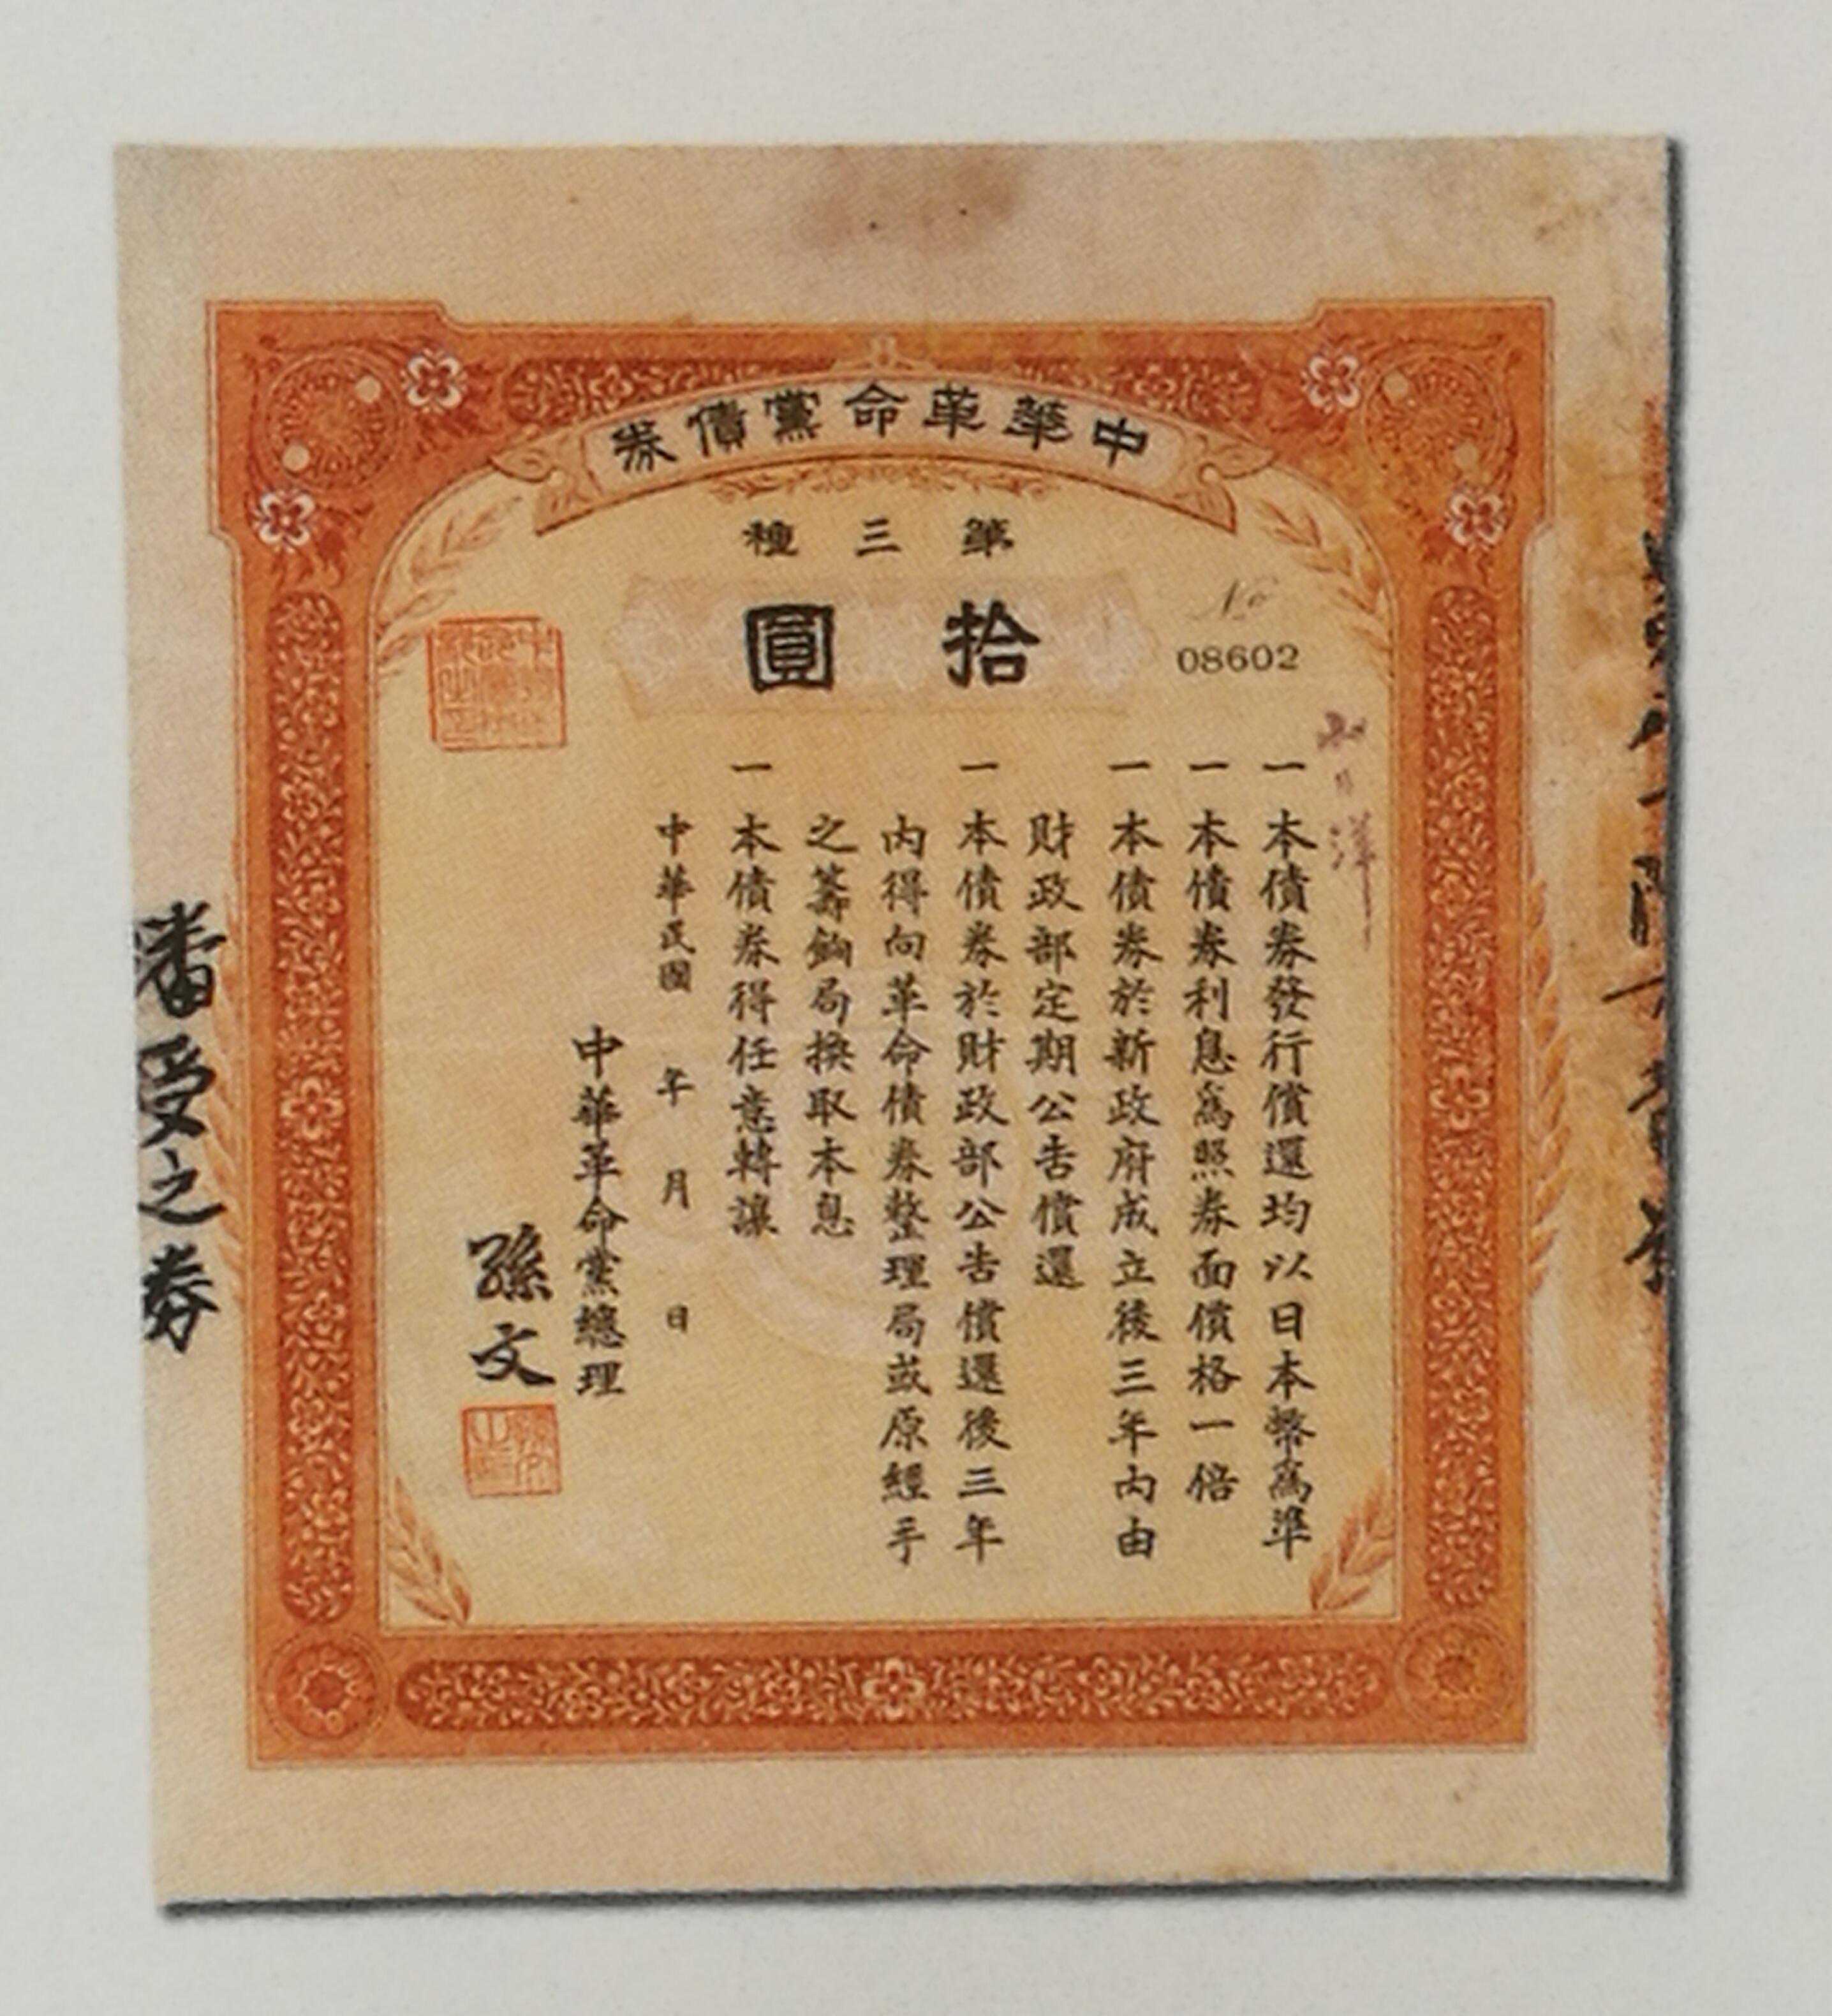 中華革命黨債券
第三種
拾圓
No
08602
一本債券發行償還均以日本幣爲準
一本債券利息爲照券面價格一倍
一本債券於新政府成立後三年內由
財政部定期公告償還
一本債券於財政部公告償還後三年
內得向革命債券整理局或原經手
之籌餉局換取本息
一本債券得任意轉讓
中華民國 年 月 日
中華革命黨總理
孫文
潘受之券